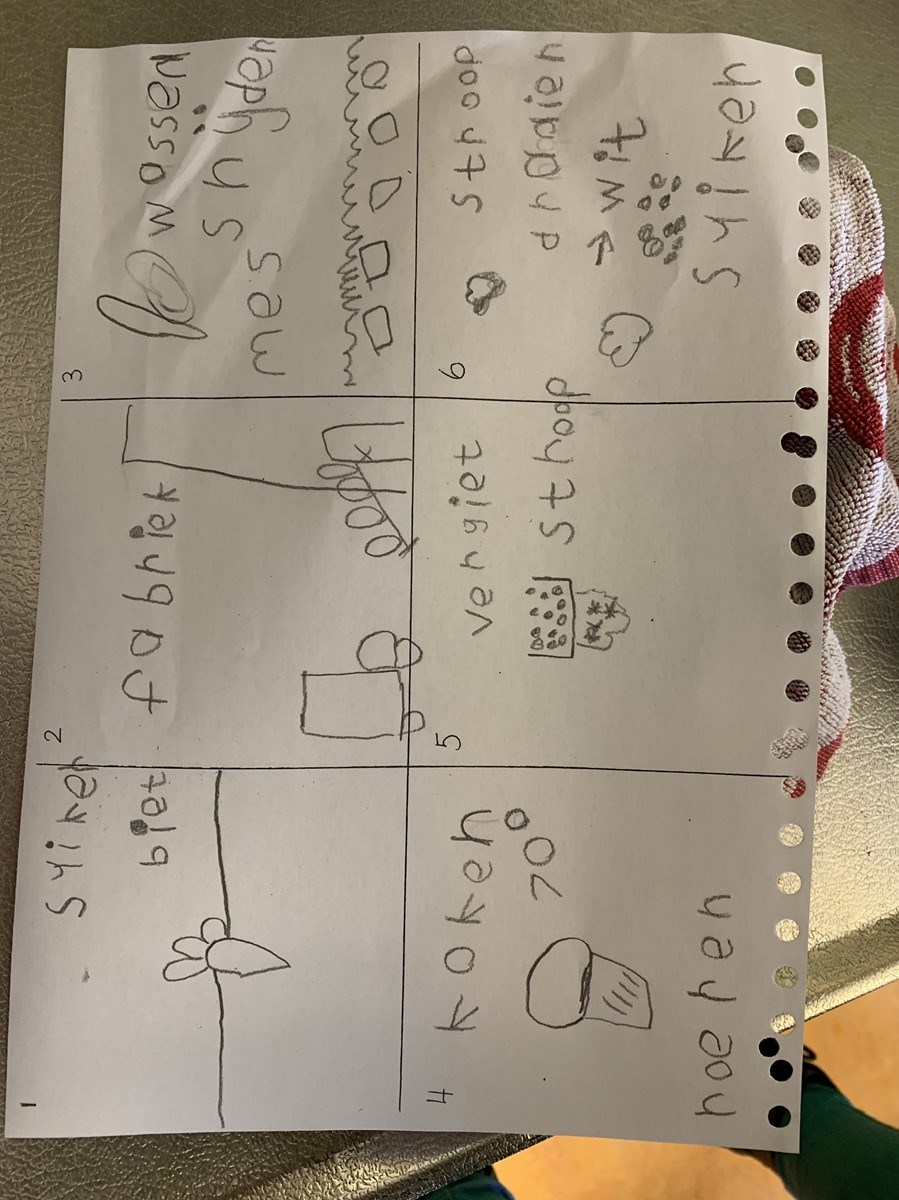 1
syiker
biet
2
fabriek
3
wassen
snyden
mes
4
koken
70°
roeren
5
vergiet
stroop
6
stroop
draaien
→ wit
syiker